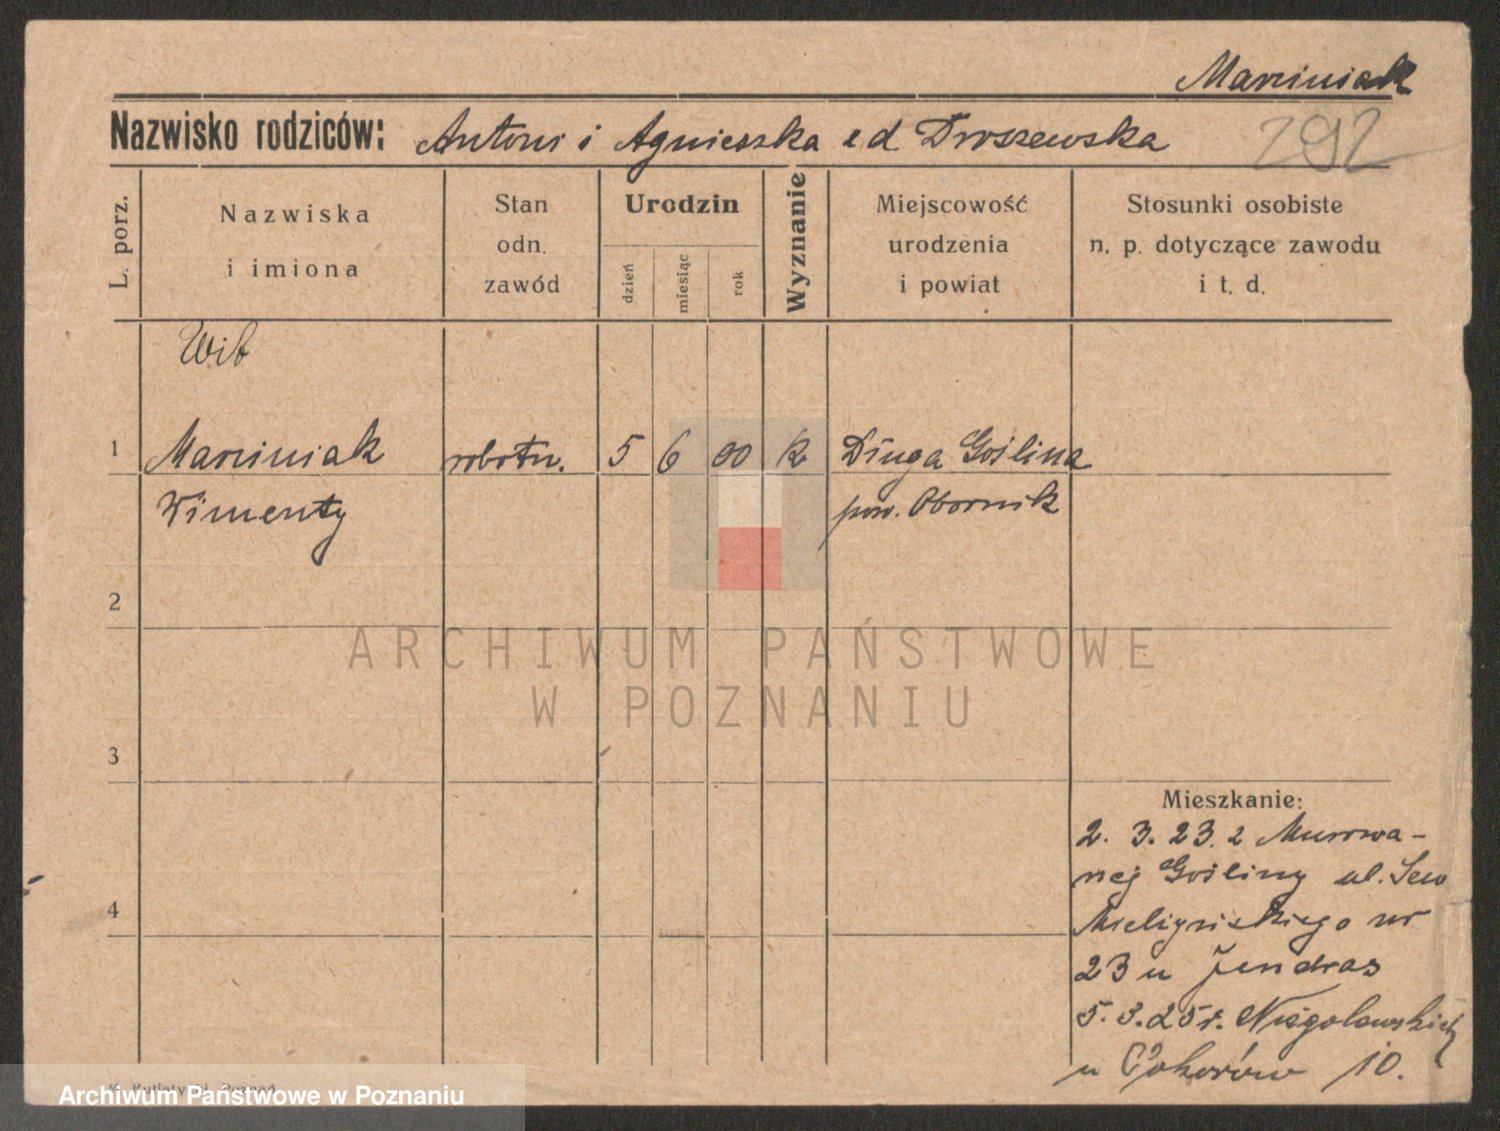 Marciniak
Nazwisko rodziców: Antoni i Agnieszka z d Droszewska
292
L. porz.
Nazwiska i imiona
Stan odn. zawód
Urodzin
dzień
miesiąc
rok
Wyznanie
Miejscowość urodzenia i powiat
Stosunki osobiste n. p. dotyczące zawodu i t. d.
Wit
1 Marciniak robotn. 5 6 00 k Długa Goślina
Wincenty pow. Obornik
2
3
4
Mieszkanie:
2. 3. 23. z Murowa-
nej Gośliny ul. Sew
Mielżyńskiego nr
23 u Jendras
5. 3. 25 r. Niegolewskich
u 10.
ARCHIWUM PAŃSTWOWE
W POZNANIU
Poznań
Archiwum Państwowe w Poznaniu